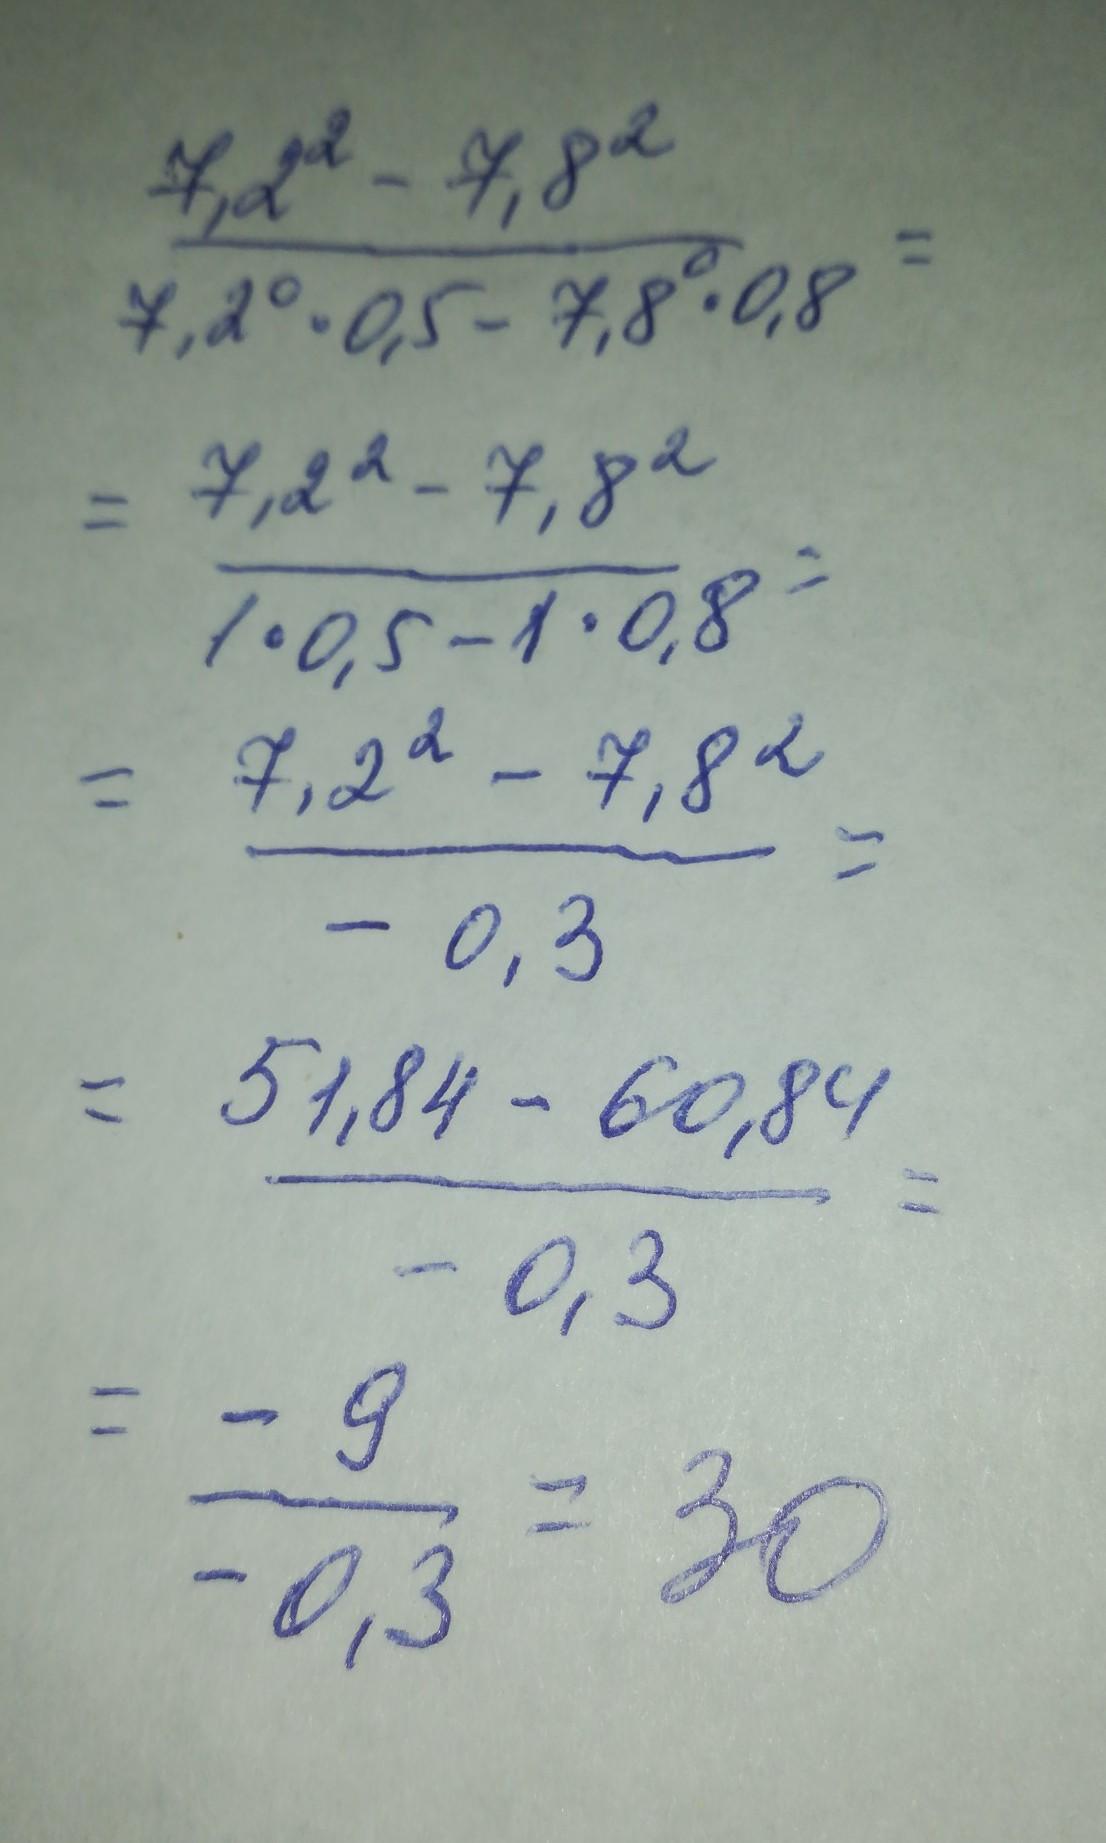 7,2² - 7,8²
7,2⁰ · 0,5 - 7,8⁰ · 0,8 =
= 7,2² - 7,8²
1 · 0,5 - 1 · 0,8 =
= 7,2² - 7,8² =
- 0,3
= 51,84 - 60,84 =
- 0,3
= - 9
- 0,3 = 30